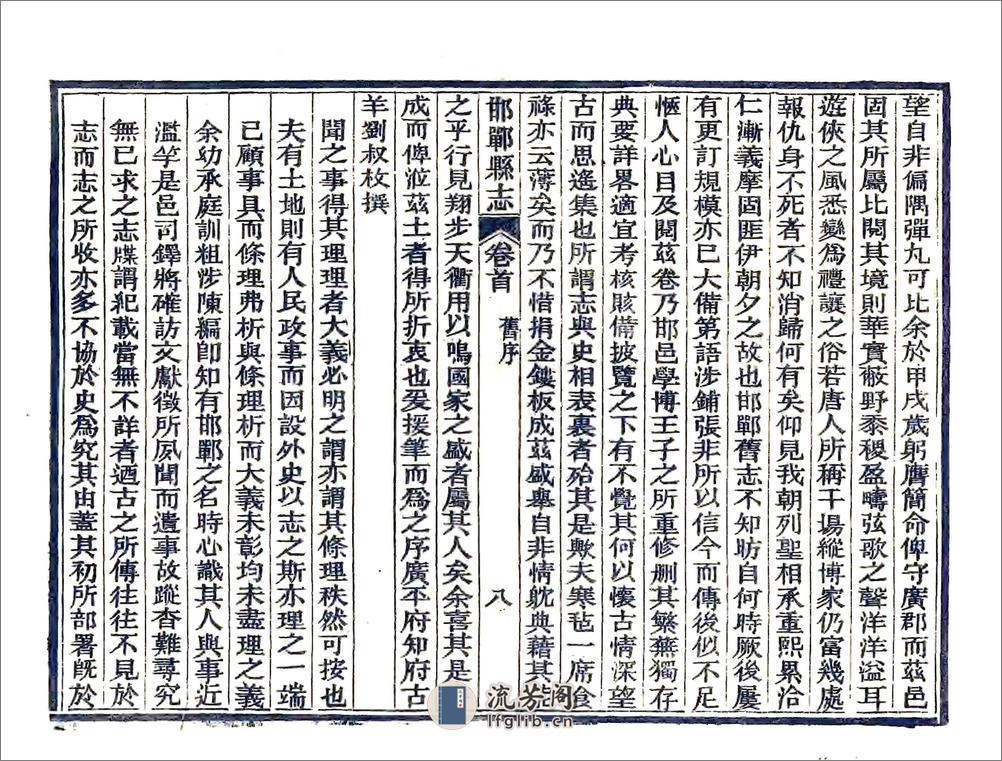 望自非偏隅彈丸可比余於甲戌歲躬膺簡命俾守廣郡而茲邑
固其所屬比閱其境則華實蔽野黍稷盈疇弦歌之聲洋洋溢耳
遊俠之風悉變爲禮讓之俗若唐人所稱千場縱博家仍富幾處
報仇身不死者不知消歸何有矣仰見我朝列聖相承重熙累洽
仁漸義摩固匪伊朝夕之故也邯鄲舊志不知昉自何時厥後屢
有更訂規模亦已大備第語涉鋪張非所以信今而傳後似不足
愜人心目及閱茲卷乃邯邑學博王子之所重修刪其繁蕪獨存
典要詳畧適宜考核賅備披覽之下有不覺其何以懷古情深望
古而思遙集也所謂志與史相表裏者殆其是歟夫寒毡一席食
祿亦云薄矣而乃不惜捐金鏤板成茲盛舉自非情躭典藉其
邯鄲縣志
卷首
舊序
八
之乎行見翔步天衢用以鳴國家之盛者屬其人矣余喜其是
成而俾涖茲土者得所折衷也爰援筆而爲之序廣平府知府古
羊劉叔枚撰
聞之事得其理理者大義必明之謂亦謂其條理秩然可按也
夫有土地則有人民政事而因設外史以志之斯亦理之一端
已顧事具而條理弗析與條理析而大義未彰均未盡理之義
余幼承庭訓粗涉陳編卽知有邯鄲之名時心識其人與事近
濫竽是邑司鐸將確訪文獻徵所夙聞而遺事故蹤杳難尋究
無已求之志牒謂犯載當無不詳者迺古之所傳往往不見於
志而志之所收亦多不協於史爲究其由蓋其初所部署旣於
流芳阁
lfglib.cn